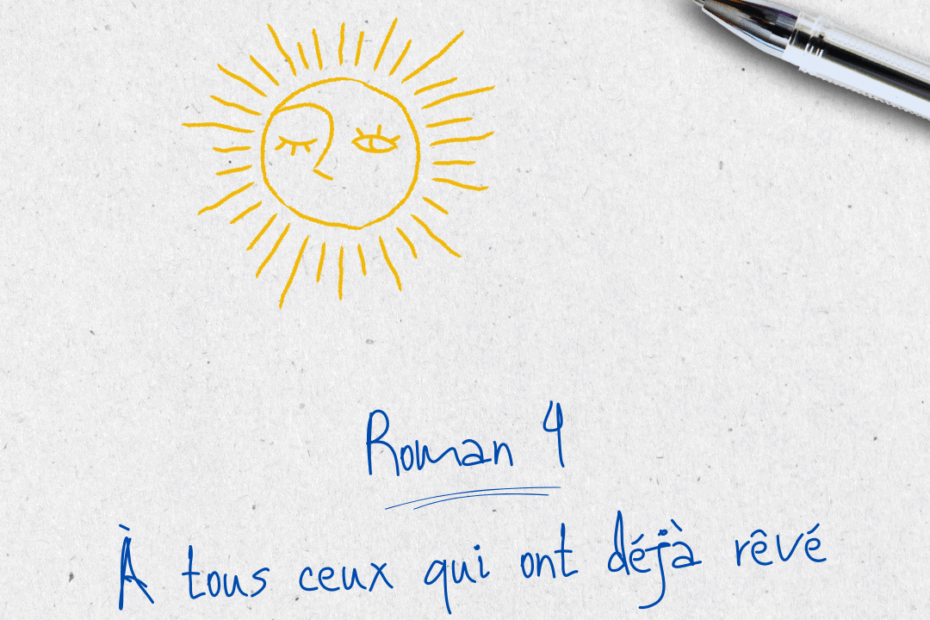 Roman 4
À tous ceux qui ont déjà rêvé